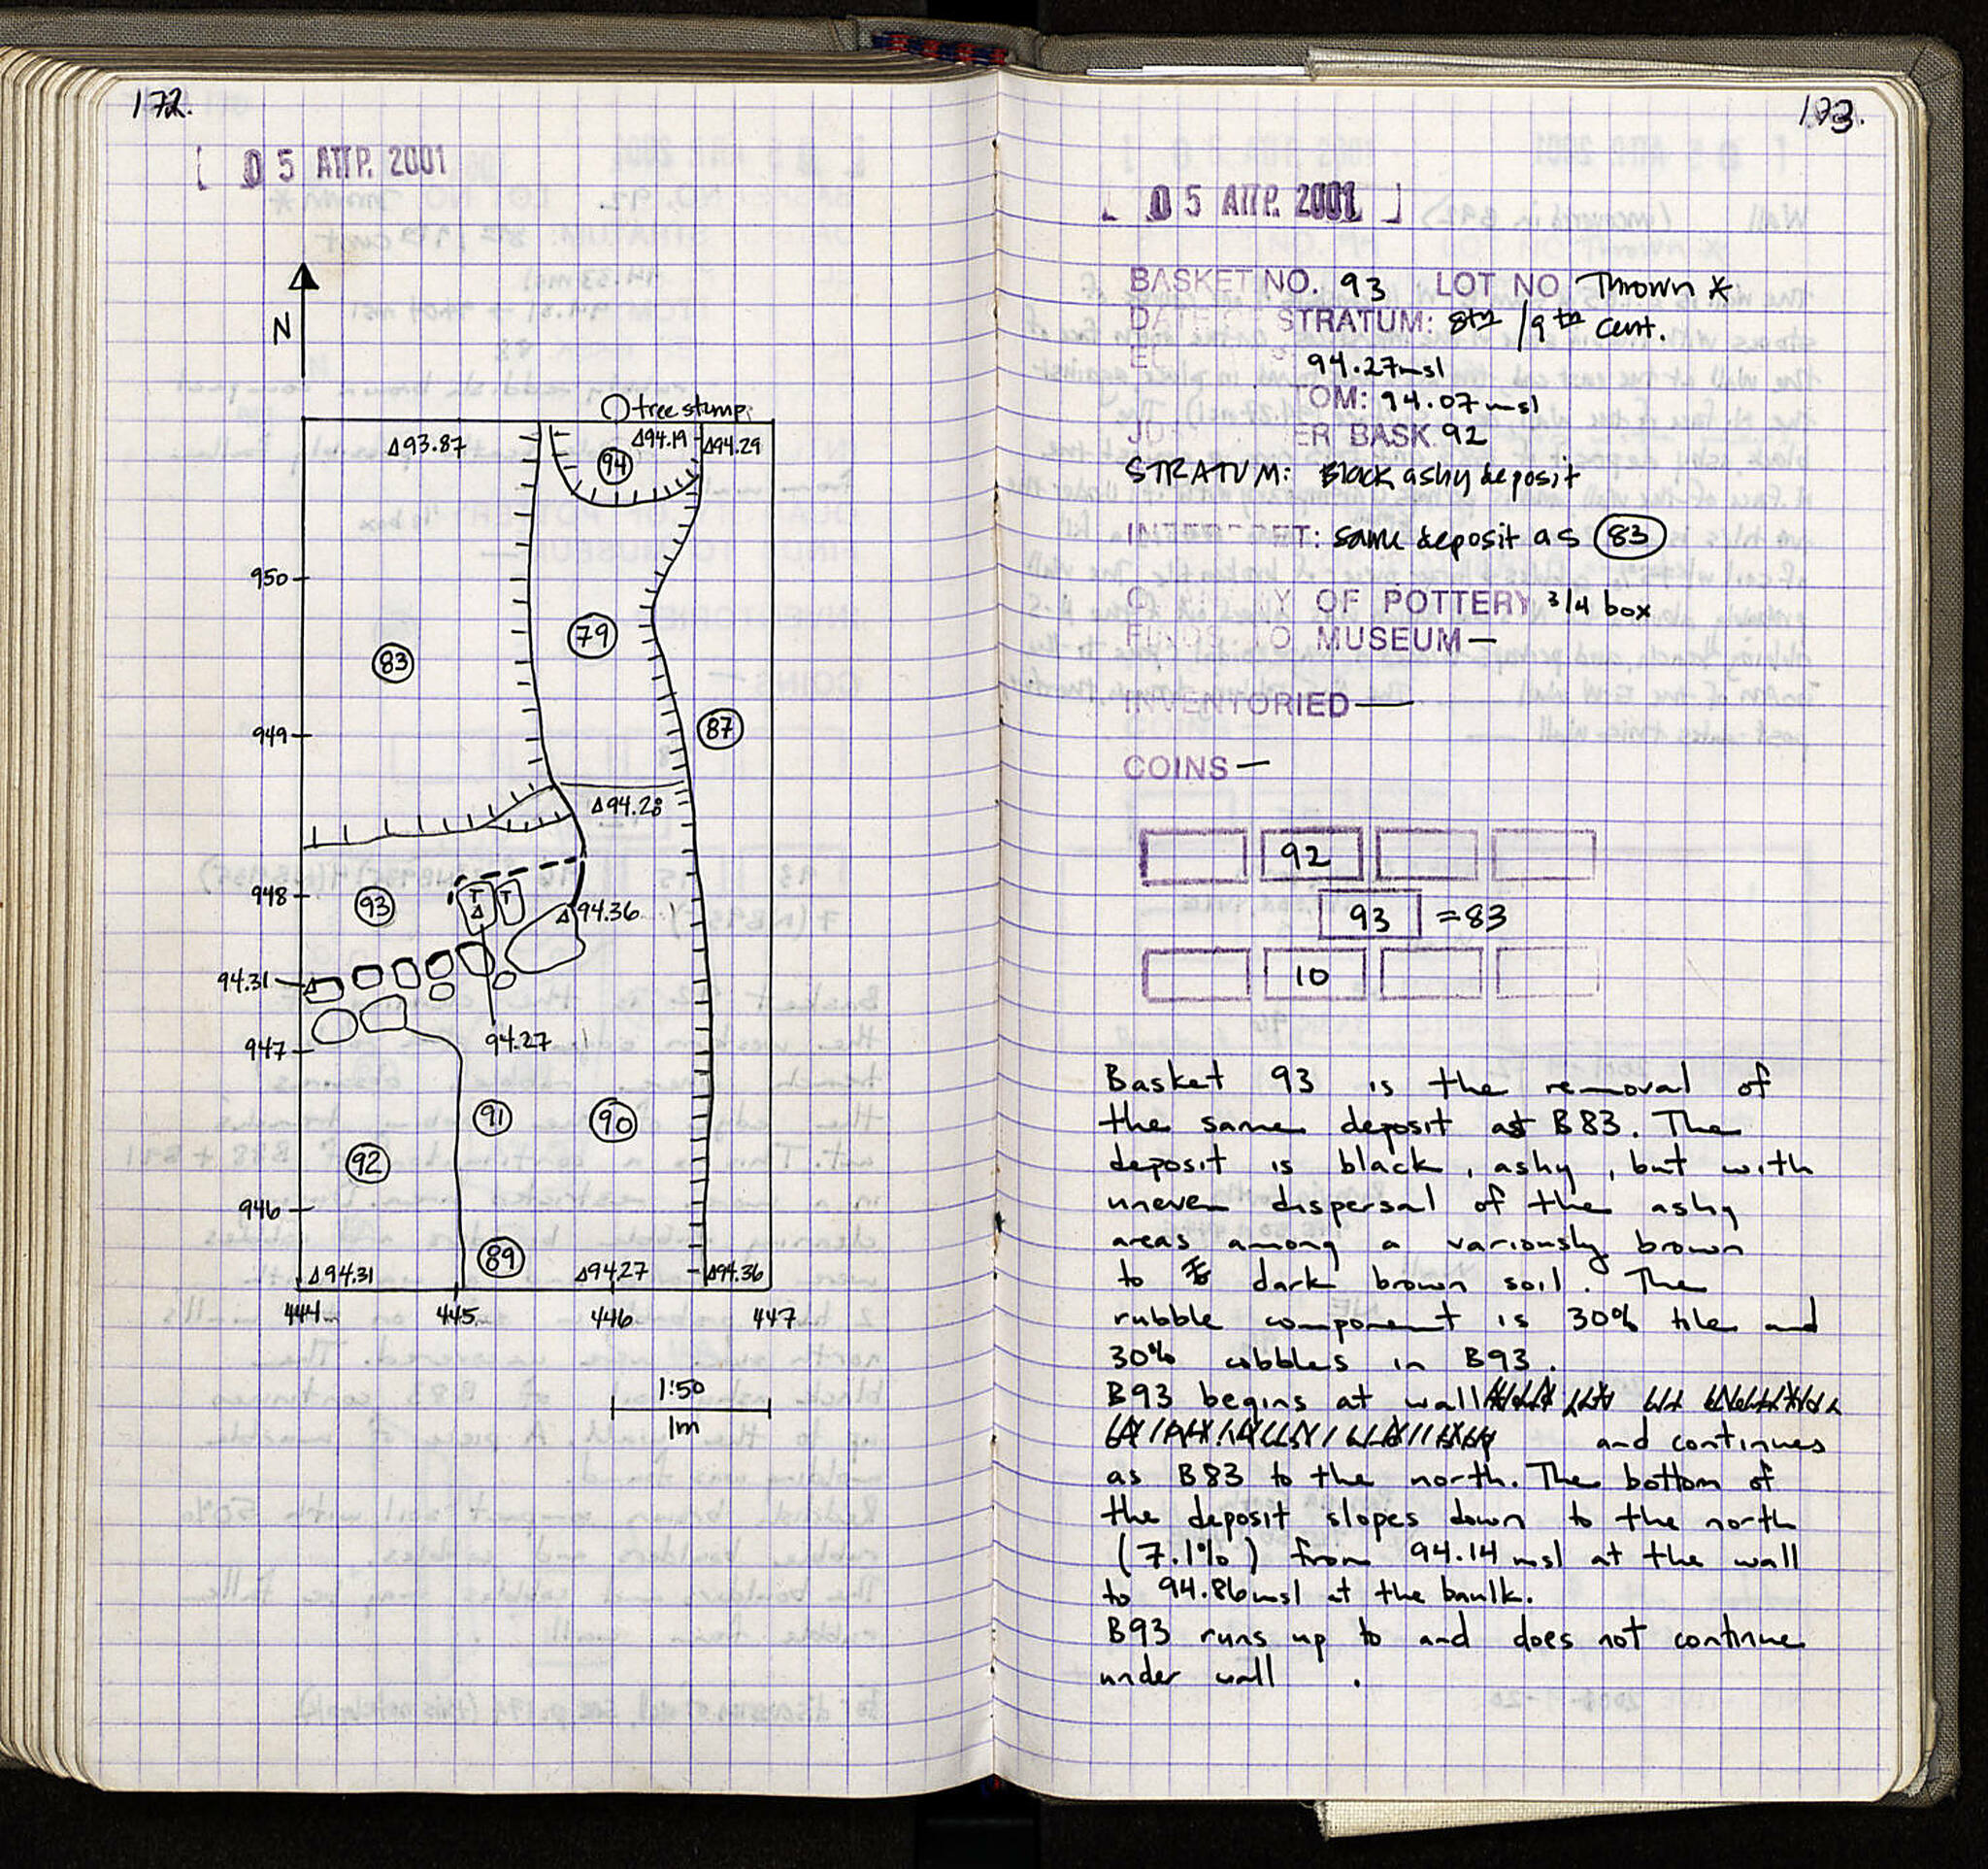 172.
[ 0 5 ΑΠΡ. 2001
N
tree stump
Δ93.87
Δ94.19
Δ94.29
94
950
79
83
87
949
Δ94.28
948
93
T
T
Δ
Δ94.36
94.31
Δ
94.27
947
91
90
92
946
89
Δ94.31
Δ94.27
Δ94.36
444
445
446
447
1:50
1m
173.
0 5 ΑΠΡ. 2001 ]
BASKET NO. 93 LOT NO Thrown *
STRATUM: 8th / 9th cent.
94.27 msl
OM: 94.07 msl
ER BASK 92
STRATUM: Black ashy deposit
INTERPRET: same deposit as 83
Y OF POTTERY 3/4 box
FINDS TO MUSEUM —
INVENTORIED —
COINS —
92
93 = 83
10
Basket 93 is the removal of
the same deposit as B83. The
deposit is black, ashy, but with
uneven dispersal of the ashy
areas among a variously brown
to dark brown soil. The
rubble component is 30% tile and
30% cobbles in B93.
B93 begins at wall
and continues
as B83 to the north. The bottom of
the deposit slopes down to the north
(7.1%) from 94.14 msl at the wall
to 94.86 msl at the baulk.
B93 runs up to and does not continue
under wall .